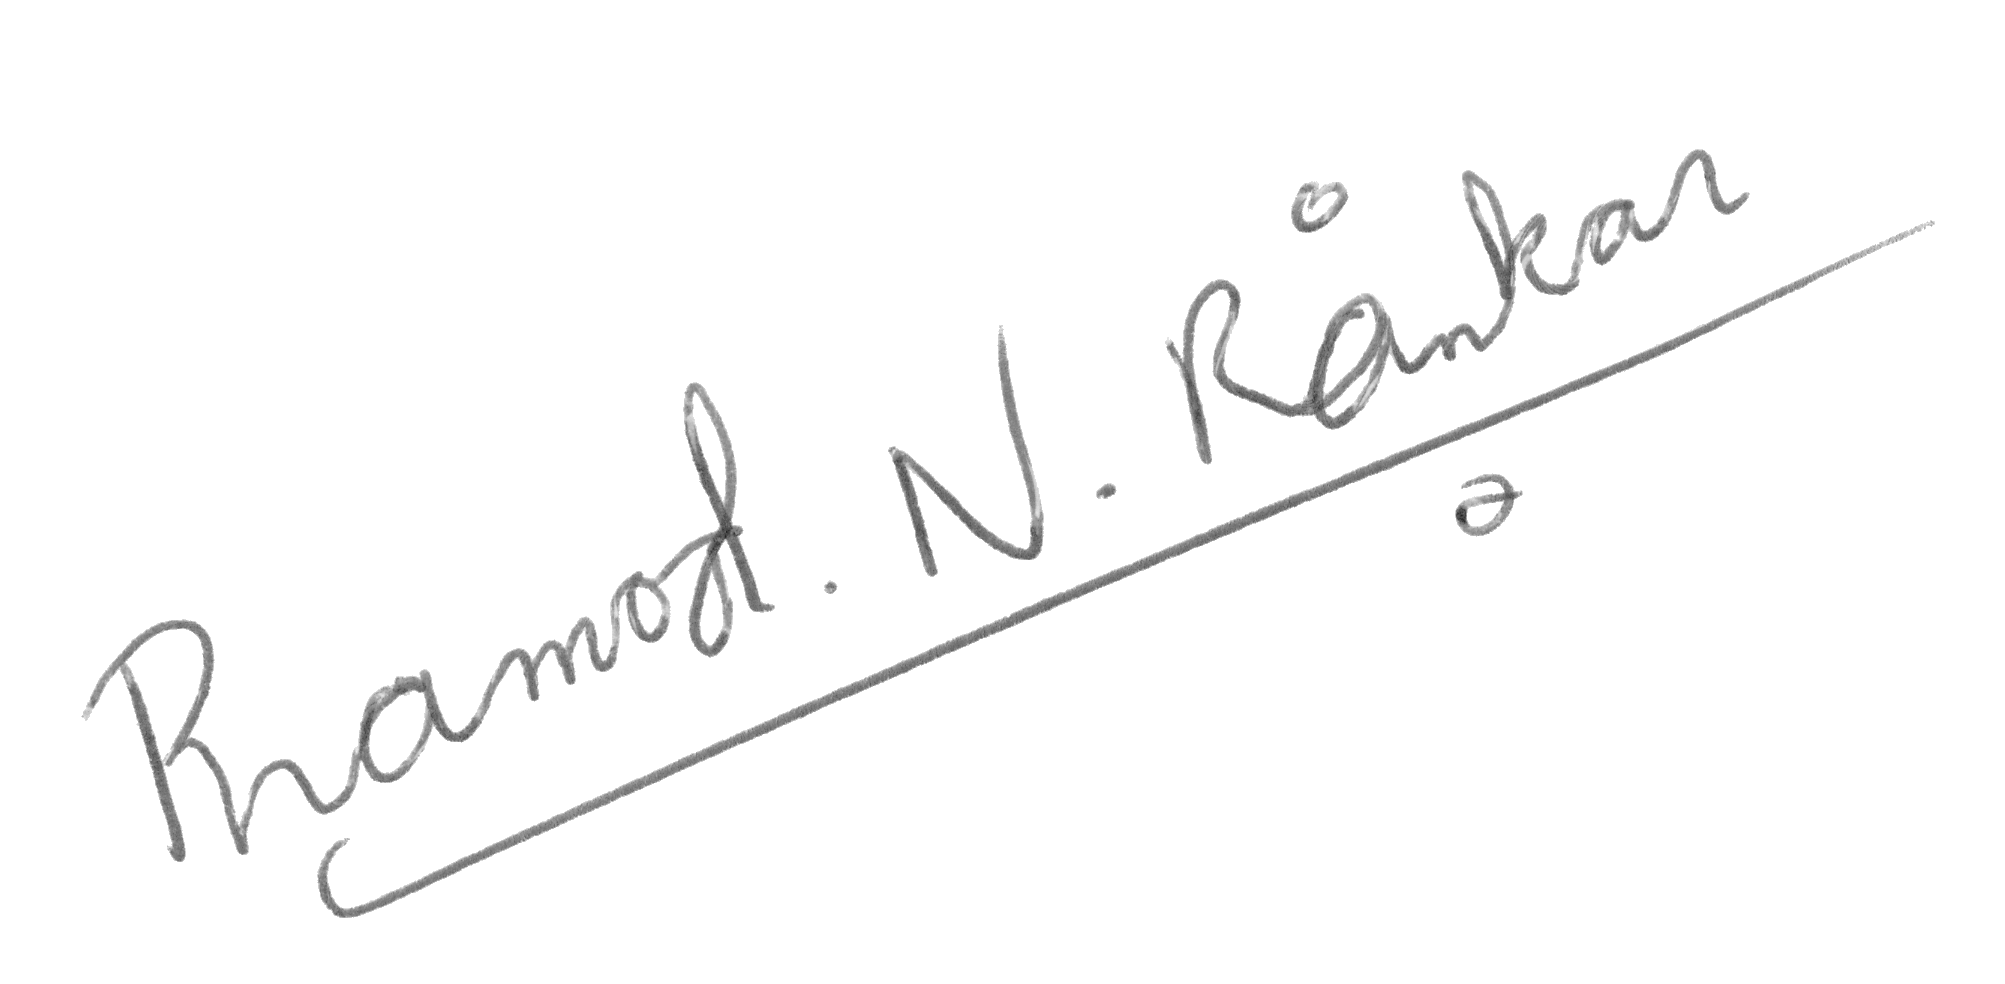 Pramod. N. Rankar